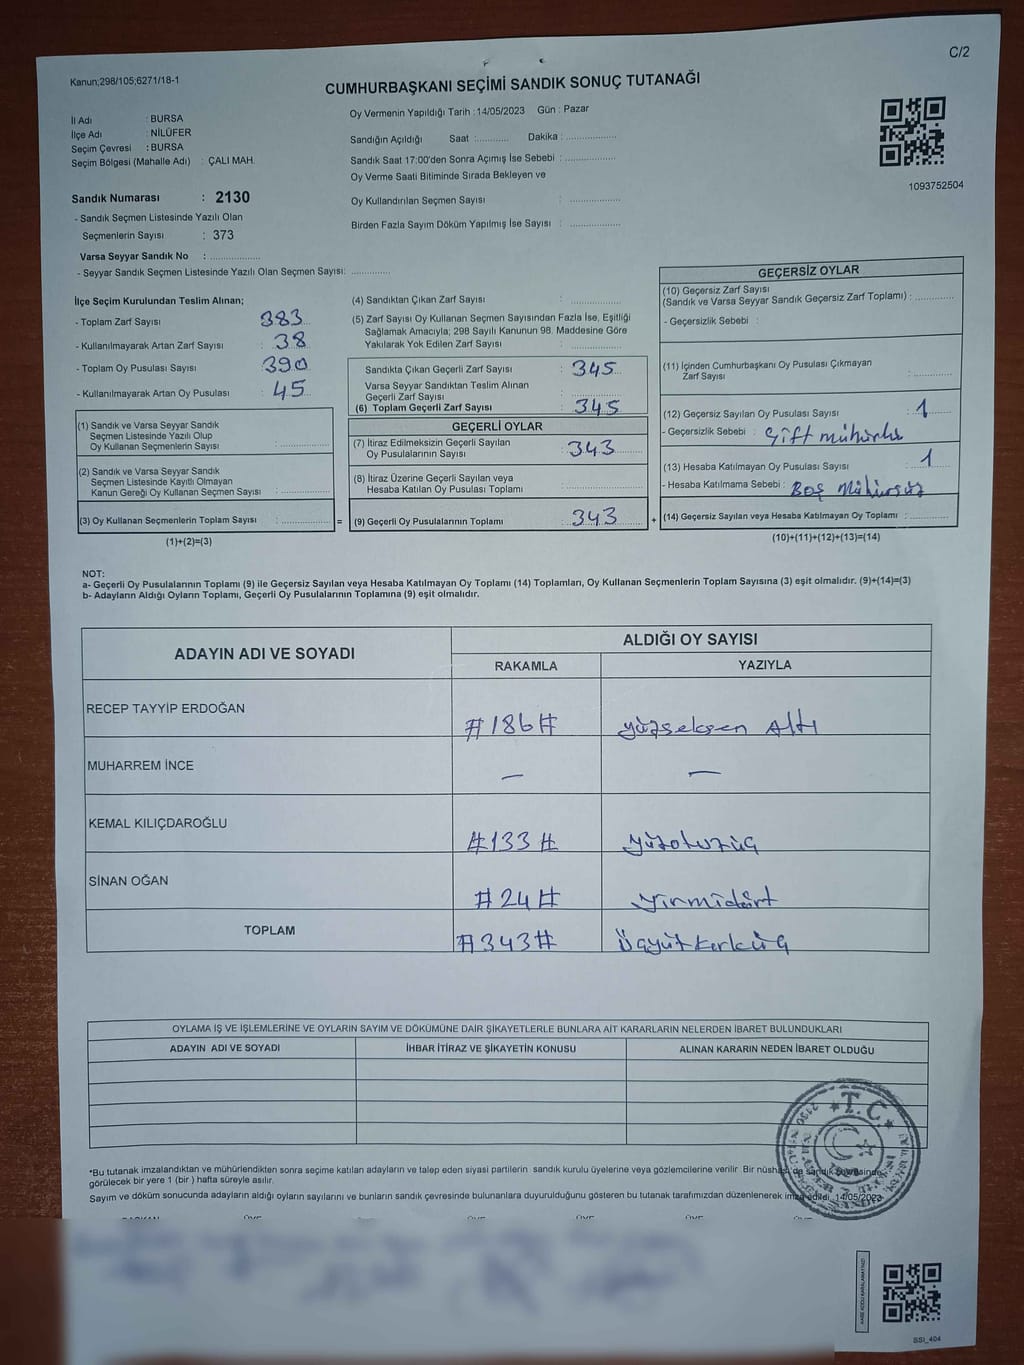 C/2
Kanun;298/105;6271/18-1
CUMHURBAŞKANI SEÇİMİ SANDIK SONUÇ TUTANAĞI
İl Adı : BURSA
İlçe Adı : NİLÜFER
Seçim Çevresi : BURSA
Seçim Bölgesi (Mahalle Adı) : ÇALI MAH.
Sandık Numarası : 2130
- Sandık Seçmen Listesinde Yazılı Olan
Seçmenlerin Sayısı : 373
Varsa Seyyar Sandık No : ....................
- Seyyar Sandık Seçmen Listesinde Yazılı Olan Seçmen Sayısı: ..............
Oy Vermenin Yapıldığı Tarih : 14/05/2023 Gün : Pazar
Sandığın Açıldığı Saat :............ Dakika : ..................
Sandık Saat 17:00'den Sonra Açımış İse Sebebi : ..................
Oy Verme Saati Bitiminde Sırada Bekleyen ve
Oy Kullandırılan Seçmen Sayısı : ..................
Birden Fazla Sayım Döküm Yapılmış İse Sayısı : ..................
1093752504
İlçe Seçim Kurulundan Teslim Alınan;
- Toplam Zarf Sayısı : 383
- Kullanılmayarak Artan Zarf Sayısı : 38
- Toplam Oy Pusulası Sayısı : 390
- Kullanılmayarak Artan Oy Pusulası : 45
(1) Sandık ve Varsa Seyyar Sandık
Seçmen Listesinde Yazılı Olup
Oy Kullanan Seçmenlerin Sayısı : ..................
(2) Sandık ve Varsa Seyyar Sandık
Seçmen Listesinde Kayıtlı Olmayan
Kanun Gereği Oy Kullanan Seçmen Sayısı : ..................
(3) Oy Kullanan Seçmenlerin Toplam Sayısı : ..................
(1)+(2)=(3)
=
(4) Sandıktan Çıkan Zarf Sayısı : ..................
(5) Zarf Sayısı Oy Kullanan Seçmen Sayısından Fazla İse, Eşitliği
Sağlamak Amacıyla; 298 Sayılı Kanunun 98. Maddesine Göre
Yakılarak Yok Edilen Zarf Sayısı : ..................
Sandıkta Çıkan Geçerli Zarf Sayısı : 345
Varsa Seyyar Sandıktan Teslim Alınan
Geçerli Zarf Sayısı : ..................
(6) Toplam Geçerli Zarf Sayısı : 345
GEÇERLİ OYLAR
(7) İtiraz Edilmeksizin Geçerli Sayılan
Oy Pusulalarının Sayısı : 343
(8) İtiraz Üzerine Geçerli Sayılan veya
Hesaba Katılan Oy Pusulası Toplamı : ..................
(9) Geçerli Oy Pusulalarının Toplamı : 343
+
GEÇERSİZ OYLAR
(10) Geçersiz Zarf Sayısı
(Sandık ve Varsa Seyyar Sandık Geçersiz Zarf Toplamı) : ..............
- Geçersizlik Sebebi :
(11) İçinden Cumhurbaşkanı Oy Pusulası Çıkmayan
Zarf Sayısı : ..............
(12) Geçersiz Sayılan Oy Pusulası Sayısı : 1
- Geçersizlik Sebebi : Çift mühürlü
(13) Hesaba Katılmayan Oy Pusulası Sayısı : 1
- Hesaba Katılmama Sebebi : Boş Mühürsüz
(14) Geçersiz Sayılan veya Hesaba Katılmayan Oy Toplamı : ..............
(10)+(11)+(12)+(13)=(14)
NOT:
a- Geçerli Oy Pusulalarının Toplamı (9) ile Geçersiz Sayılan veya Hesaba Katılmayan Oy Toplamı (14) Toplamları, Oy Kullanan Seçmenlerin Toplam Sayısına (3) eşit olmalıdır. (9)+(14)=(3)
b- Adayların Aldığı Oyların Toplamı, Geçerli Oy Pusulalarının Toplamına (9) eşit olmalıdır.
ADAYIN ADI VE SOYADI
ALDIĞI OY SAYISI
RAKAMLA YAZIYLA
RECEP TAYYİP ERDOĞAN #186# yüzseksen Altı
MUHARREM İNCE — —
KEMAL KILIÇDAROĞLU #133# yüzotuzüç
SİNAN OĞAN #24# yirmidört
TOPLAM #343# Üçyüzkırküç
OYLAMA İŞ VE İŞLEMLERİNE VE OYLARIN SAYIM VE DÖKÜMÜNE DAİR ŞİKAYETLERLE BUNLARA AİT KARARLARIN NELERDEN İBARET BULUNDUKLARI
ADAYIN ADI VE SOYADI İHBAR İTİRAZ VE ŞİKAYETİN KONUSU ALINAN KARARIN NEDEN İBARET OLDUĞU
T.C.
2130
*Bu tutanak imzalandıktan ve mühürlendikten sonra seçime katılan adayların ve talep eden siyasi partilerin sandık kurulu üyelerine veya gözlemcilerine verilir. Bir nüshası da sandık çevresinde
görülecek bir yere 1 (bir ) hafta süreyle asılır.
Sayım ve döküm sonucunda adayların aldığı oyların sayılarını ve bunların sandık çevresinde bulunanlara duyurulduğunu gösteren bu tutanak tarafımızdan düzenlenerek imza edildi. 14/05/2023
SSİ_404